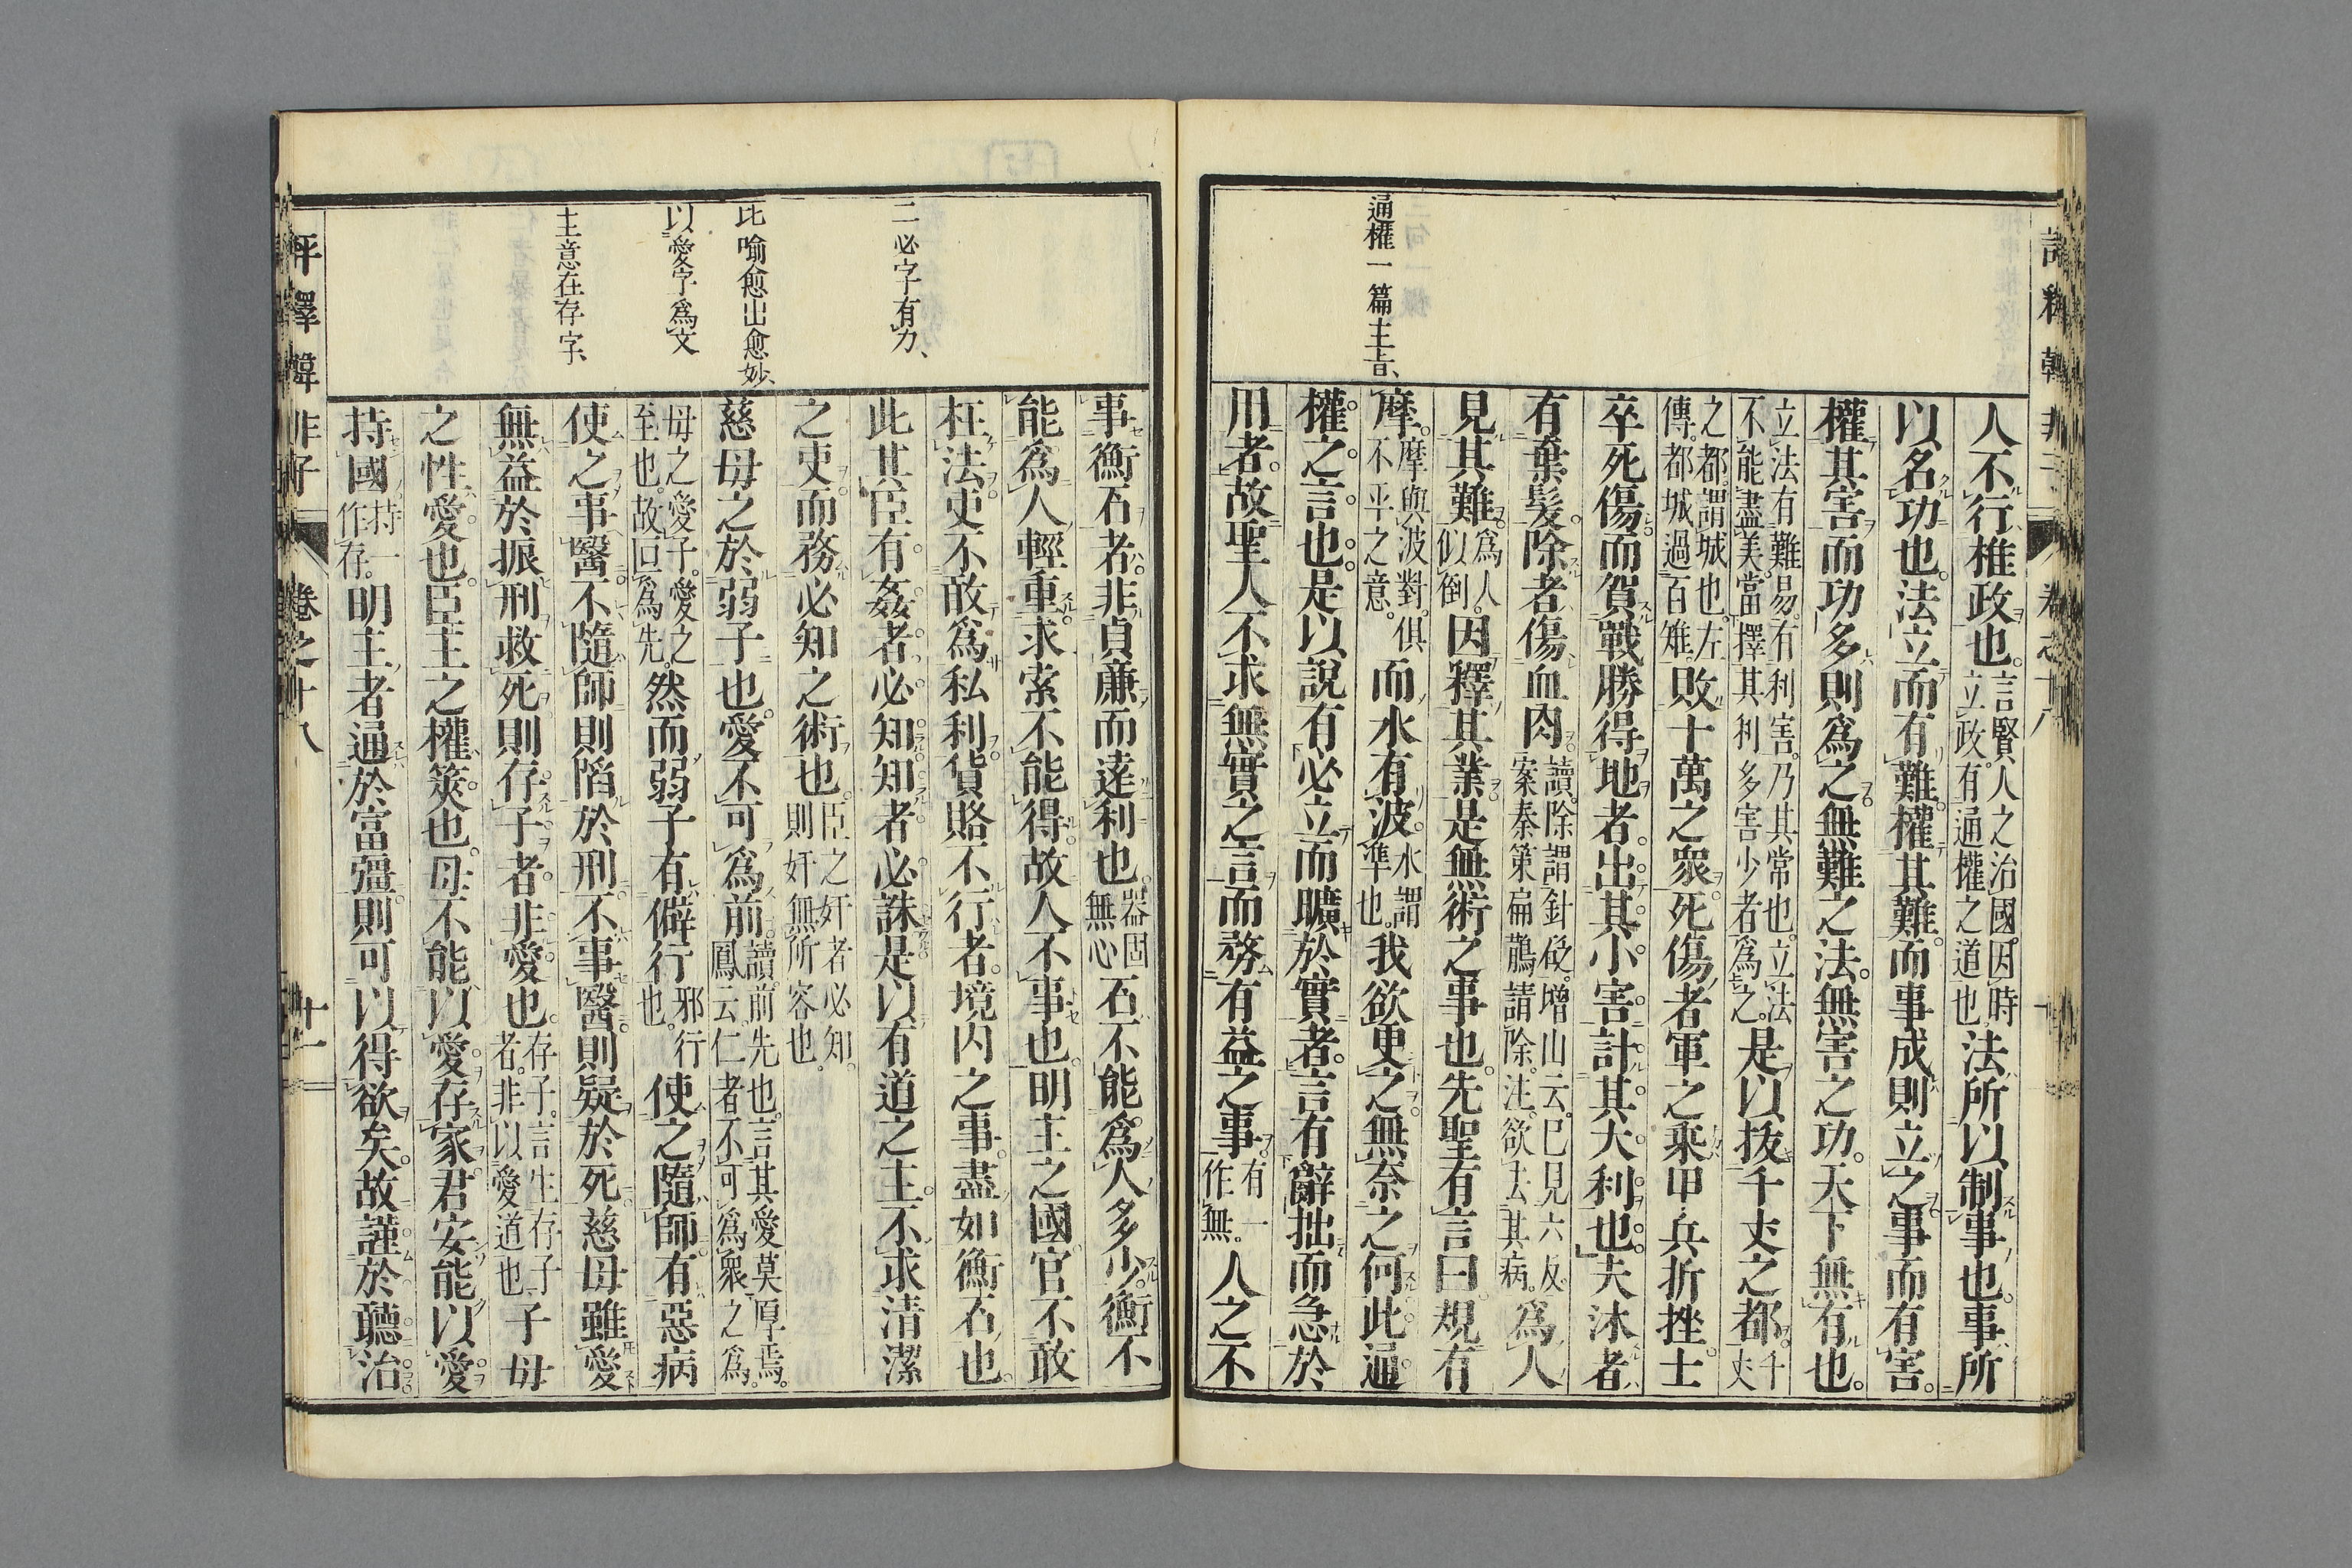 通權一篇主旨、
人不行推政也。言賢人之治國因時立政。有通權之道也法所以制事也。事所
以名功也。法立而有難。權其難。而事成則立之事而有害。
權其害而功多則爲之。無難之法。無害之功。天下無有也。
立法有難易。有利害。乃其常也。立法不能盡美。當擇其利多害少者爲之。是以拔千丈之都。千丈
之都。謂城也。左傳。都城過百雉。敗十萬之衆。死傷者軍之乘甲兵折挫士
卒死傷而賀戰勝得地者。出其小害計其大利也。夫沐者
有棄髮。除者傷血肉。讀。除謂針砭。增山云。已見六反。案秦策扁鵲請除。注。欲去其病。爲人
見其難。爲人似倒。因釋其業。是無術之事也。先聖有言曰規有
摩。摩與波對。俱不平之意。而水有波。水謂準也。我欲更之。無奈之何。此通
權之言也。是以說有必立而曠於實者。言有辭拙而急於
用者。故聖人不求無實之言。而務有益之事。有一作無。人之不
評釋韓非子 卷之十八 十一
二必字有力、
比喻愈出愈妙、
以愛字爲文
主意在存字、
事衡石者。非貞廉而遠利也。器固無心石不能爲人多少。衡不
能爲人輕重。求索不能得。故人不事也。明主之國官不敢
枉法。吏不敢爲私利。貨賂不行者。境内之事。盡如衡石也。
此其臣有姦者必知。知者必誅。是以有道之主不求清潔
之吏。而務必知之術也。臣之奸者必知。則奸無所容也。
慈母之於弱子也。愛不可爲前。讀。前先也。言其愛莫厚焉。鳳云。仁者不可爲衆之爲。
母之愛子。愛之至也。故曰爲先。然而弱子有僻行邪行也。使之隨師。有惡病
使之事醫。不隨師則陷於刑。不事醫則疑於死。慈母雖愛
無益於振刑救死。則存子者。非愛也。存子。言生存子者。非以愛道也子母
之性。愛也。臣主之權。筴也。母不能以愛存家。君安能以愛
持國持一作存。明主者通於富彊。則可以得欲矣。故謹於聽治